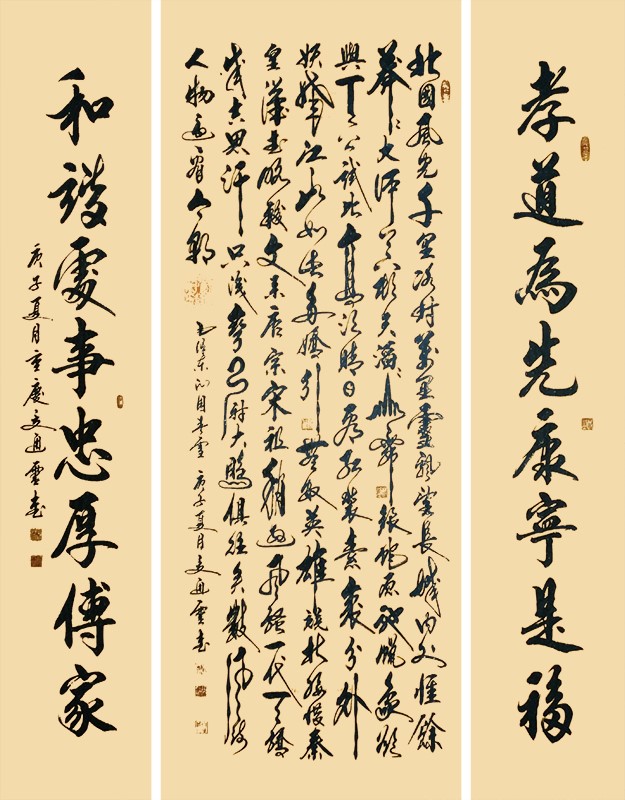 孝道為先康寧是福
北國風光千里冰封萬里雪飄望長城內外惟餘
莽莽大河上下頓失滔滔山舞銀蛇原馳蠟象欲
與天公試比高須晴日看紅裝素裹分外
妖嬈江山如此多嬌引無數英雄競折腰惜秦
皇漢武略輸文采唐宗宋祖稍遜風騷一代天驕
成吉思汗只識彎弓射大雕俱往矣數風流
人物還看今朝
毛澤東沁園春雪 庚子夏月 通雲書
和諧處事忠厚傳家
庚子夏月重慶 通雲書